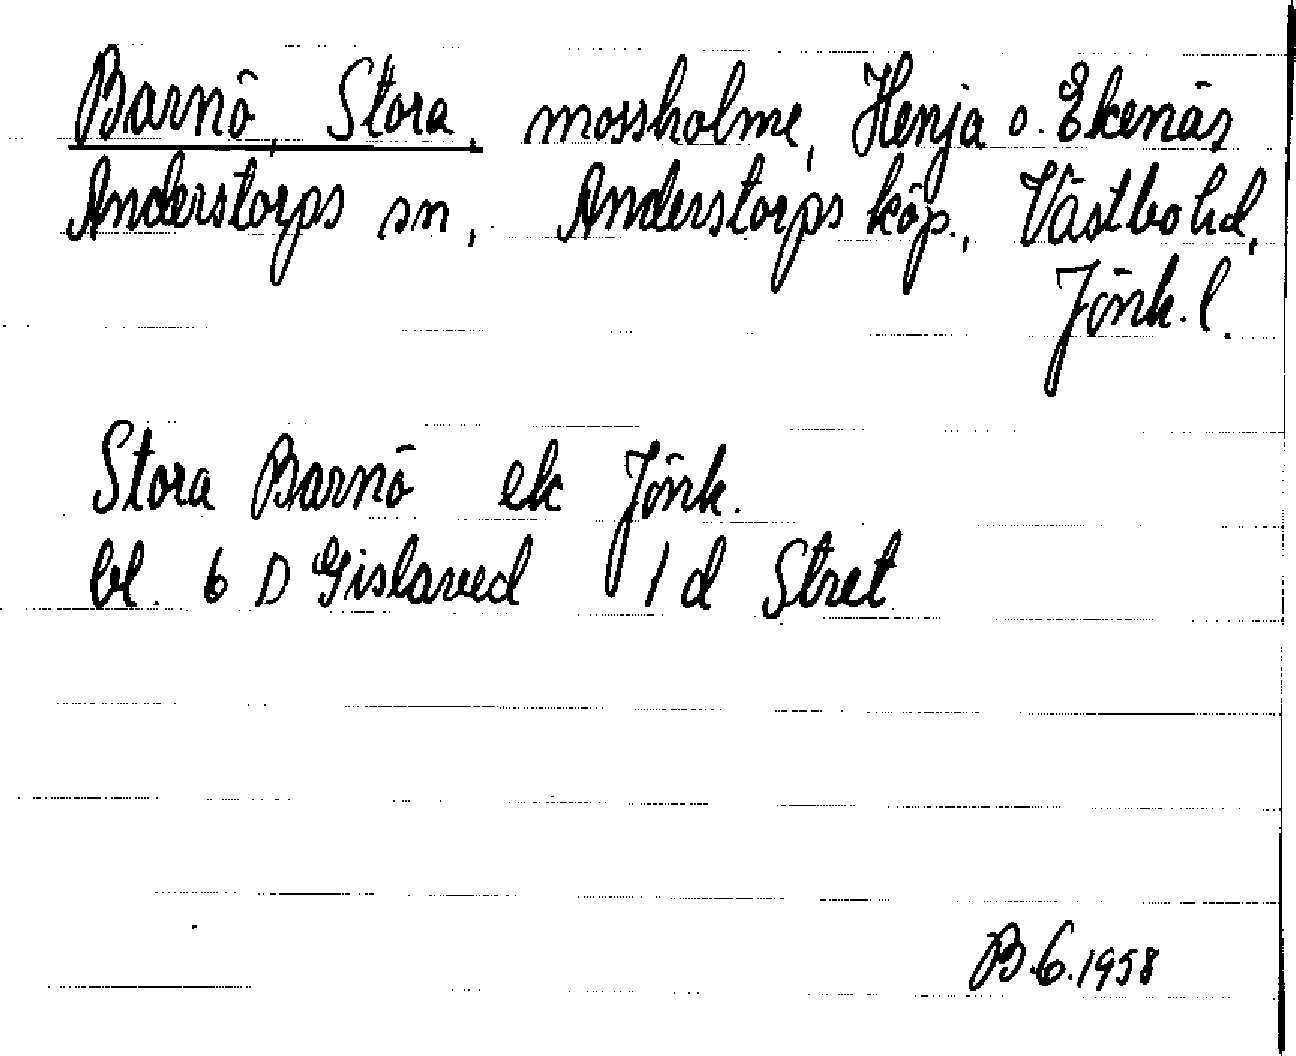 Barnö, Stora, mossholme, Henja o. Ekenäs
Anderstorps sn, Anderstorps köp., Västbo hd,
Jönk. l.
Stora Barnö ek Jönk.
bl. 6 D Gislaved 1 d Stret
B.G.1958